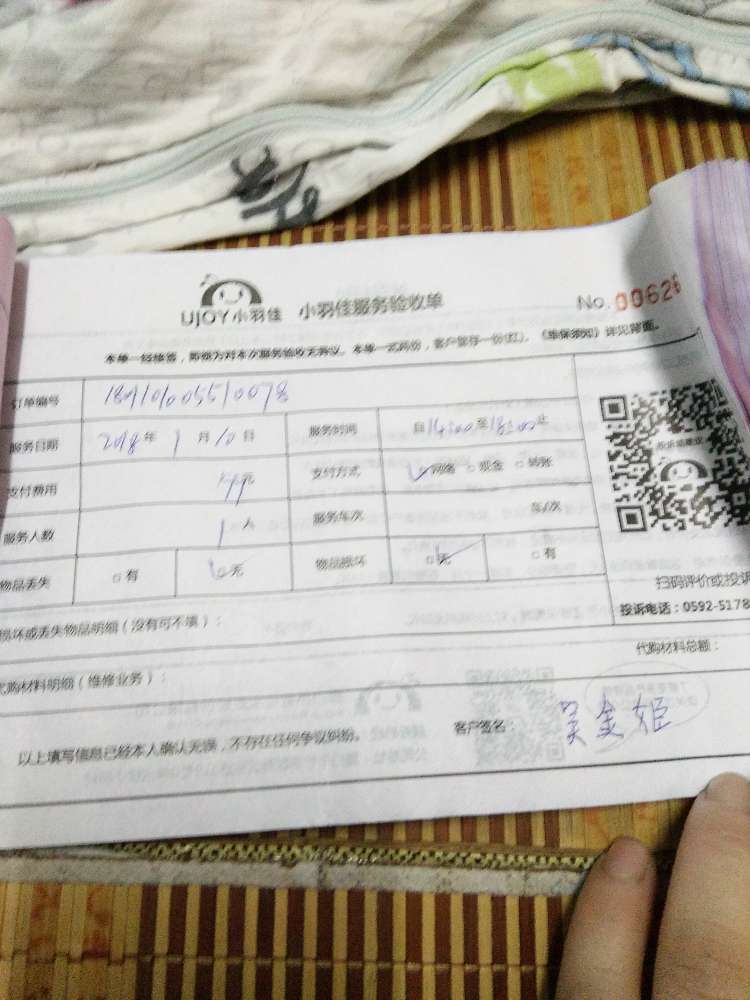 UJOY小羽佳 小羽佳服务验收单 No. 00626
本单一经签署，即视为对本次服务验收无异议。本单一式两份，客户留存一份(红)。《维保须知》详见背面。
订单编号
服务日期 2018年1月10日 服务时间 自14:00至18:00止
支付费用 元 支付方式 网络 现金 转账
服务人数 1人 服务车次 车/次
物品丢失 有 无 物品损坏 无 有
扫码评价或投诉
投诉电话：0592-5178
损坏或丢失物品明细（没有可不填）：
代购材料明细（维修业务）： 代购材料总额：
以上填写信息已经本人确认无误，不存在任何争议纠纷。 客户签名： 吴金姬